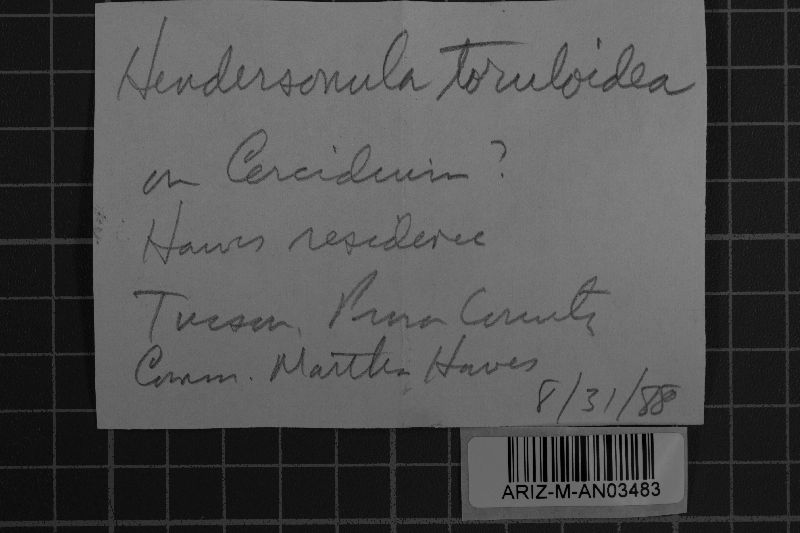 Hendersonula toruloidea
on Cercidium ?
Haws residence
Tucson, Pima County
Comm. Martha Hawes
8/31/88
ARIZ-M-AN03483